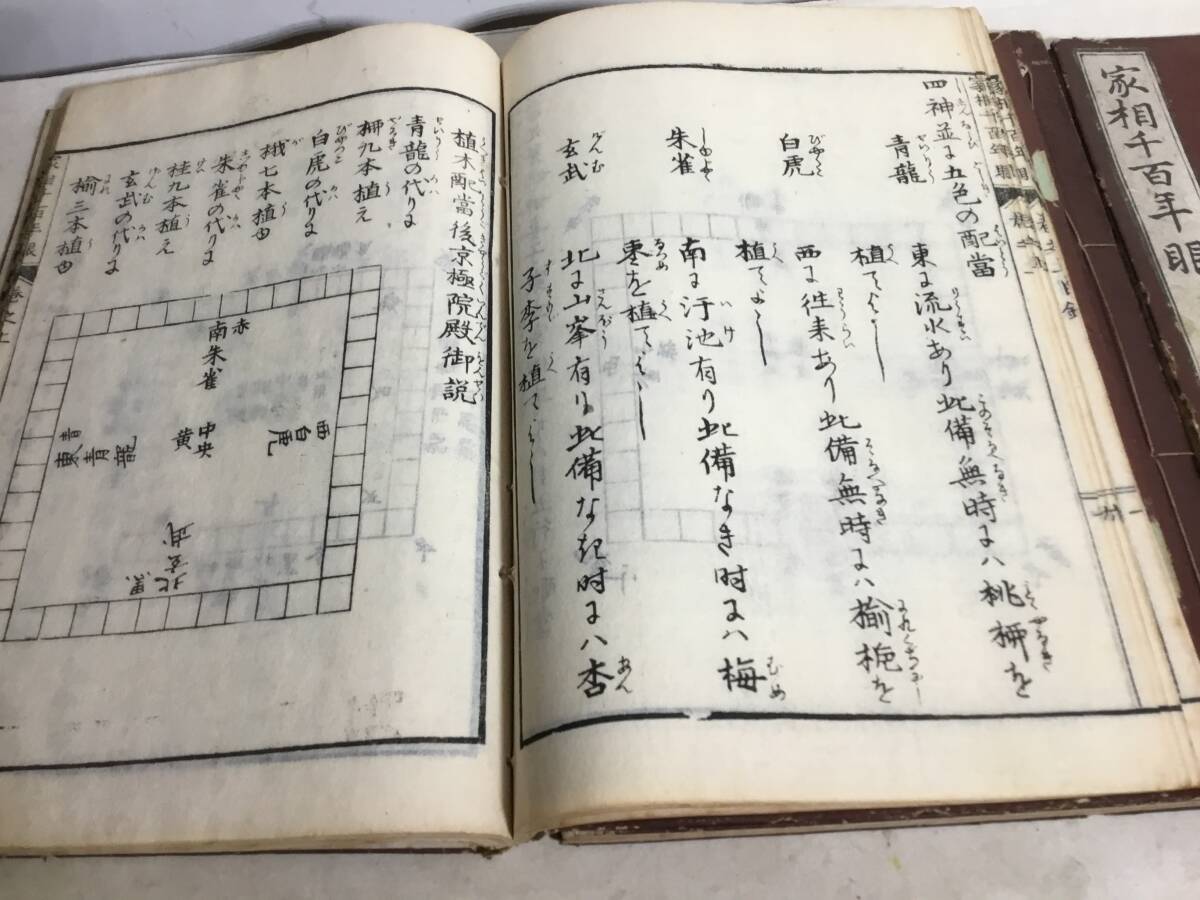 四神並に五色の配當
青龍
東に流水あり此備無時ハ桃柳を
植てよし
白虎
西に往来あり此備無時にハ楡梔を
植てよし
朱雀
南に汙池有り此備なき時にハ梅
棗を植てよし
玄武
北に山峯有り此備なき时にハ杏
子李を植てよし
植木配當後京極院殿御説
青龍の代りに
柳九本植え
白虎の代りに
七本植由
朱雀の代りに
桂九本植え
玄武の代りに
楡三本植由
赤
南朱雀
中央
黄
西白虎
青
東青龍
北玄武
黒
家相千百年眼